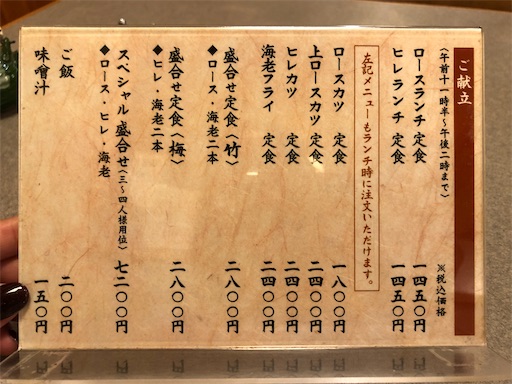 ご献立
(午前十一時半〜午後二時まで)
※税込価格
ロースランチ 定食 一四五〇円
ヒレランチ 定食 一四五〇円
左記メニューもランチ時に注文いただけます。
ロースカツ 定食 一八〇〇円
上ロースカツ 定食 二四〇〇円
ヒレカツ 定食 二四〇〇円
海老フライ 定食 二四〇〇円
盛合せ定食〈竹〉 二八〇〇円
◆ロース・海老二本
盛合せ定食〈梅〉 二八〇〇円
◆ヒレ・海老二本
スペシャル盛合せ〈三〜四人様用位〉 七二〇〇円
◆ロース・ヒレ・海老
ご飯 二〇〇円
味噌汁 一五〇円